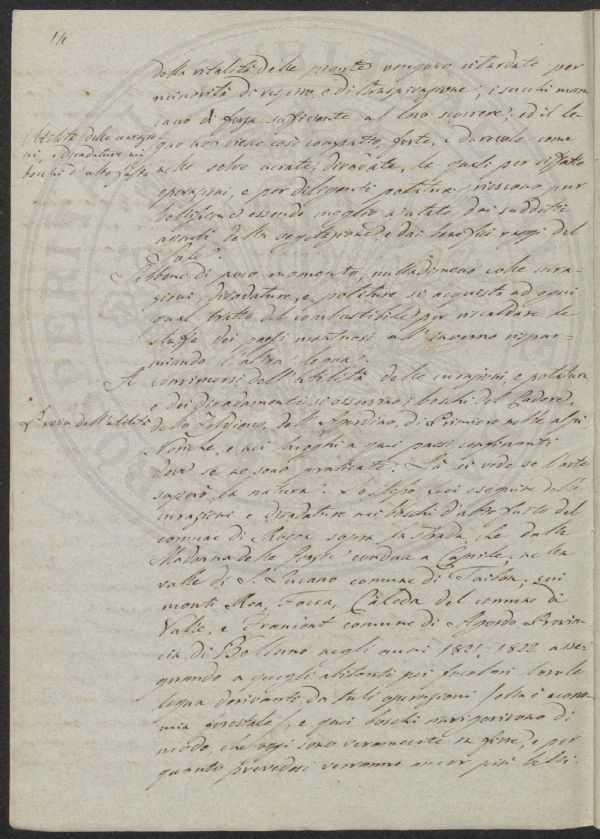 14
della vitalità delle piante vengono ritardate per
minorità di respiro, e di traspirazione; i succhi man-
cano di forza sufficiente al loro scorrere; ed il le-
gno non riesce così compatto, forte, e durevole come
nelle selve curate, diradate, le quali per siffatte
operazioni, e per diligenti potature riescono pur
bellissime essendo meglio ajutate dai suddetti
agenti della vegetazione e dai benefici raggi del
Sole.
Utilità delle curagio-
ni, e diradature nei
boschi d'alto fusto
Sebbene di poco momento, nulladimeno colle cura-
gioni, diradature, e politure si acquista ad ogni
qual tratto del combustibile per riscaldare le
stufe dei paesi montuosi all'inverno rispar-
miando l'altra legna.
A convincersi dell'utilità delle curagioni, e potature
e dei diradamenti si osservino i boschi del Cadore,
Prova dell'utilità
dello Zoldiano, dell'Agordino, di Primiero nelle alpi
Noriche, e nei luoghi a quei paesi confinanti
dove se ne sono praticate. Là si vede se l'arte
superò la natura. Io stesso feci eseguire delle
curagioni e diradature nei boschi d'alto fusto del
comune di Rocca sopra la strada che dalla
Madonna delle Grazie conduce a Caprile, nella
valle di S. Lucano comune di Taibon, sui
monti Moa, Focca, Caleda del comune di
Valle, e Framont comune di Agordo Provin-
cia di Belluno negli anni 1821-1822 asse-
gnando a quegli abitanti pei focolari loro le
legna derivanti da tali operazioni
mia forestale, e quei boschi invigorirono di
modo, che oggi sono veramente in fiore, e per
quanto prevedesi verranno ancor più belli.